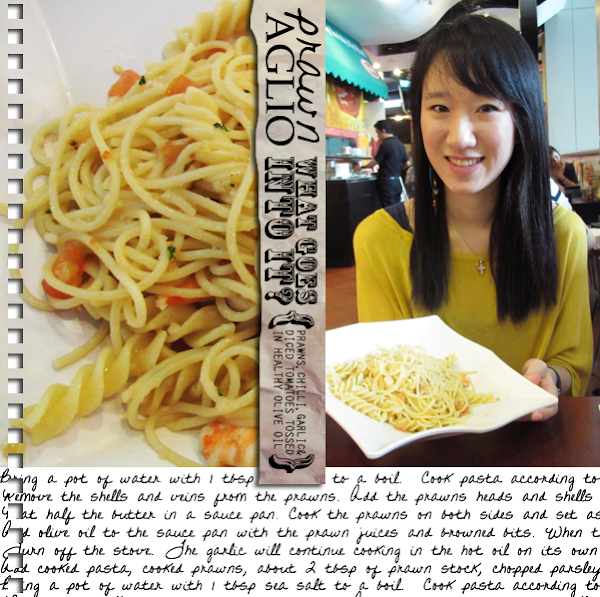 prawn
AGLIO
WHAT GOES
INTO IT?
{PRAWNS, CHILLI, GARLIC &
DICED TOMATOES TOSSED
IN HEALTHY OLIVE OIL}
Bring a pot of water with 1 tbsp to a boil. Cook pasta according to
Remove the shells and veins from the prawns. Add the prawns heads and shells
half the butter in a sauce pan. Cook the prawns on both sides and set as
olive oil to the sauce pan with the prawn juices and browned bits. When t
Turn off the stove. The garlic will continue cooking in the hot oil on its own
add cooked pasta, cooked prawns, about 2 tbsp of prawn stock, chopped parsley
Bring a pot of water with 1 tbsp sea salt to a boil. Cook pasta according to